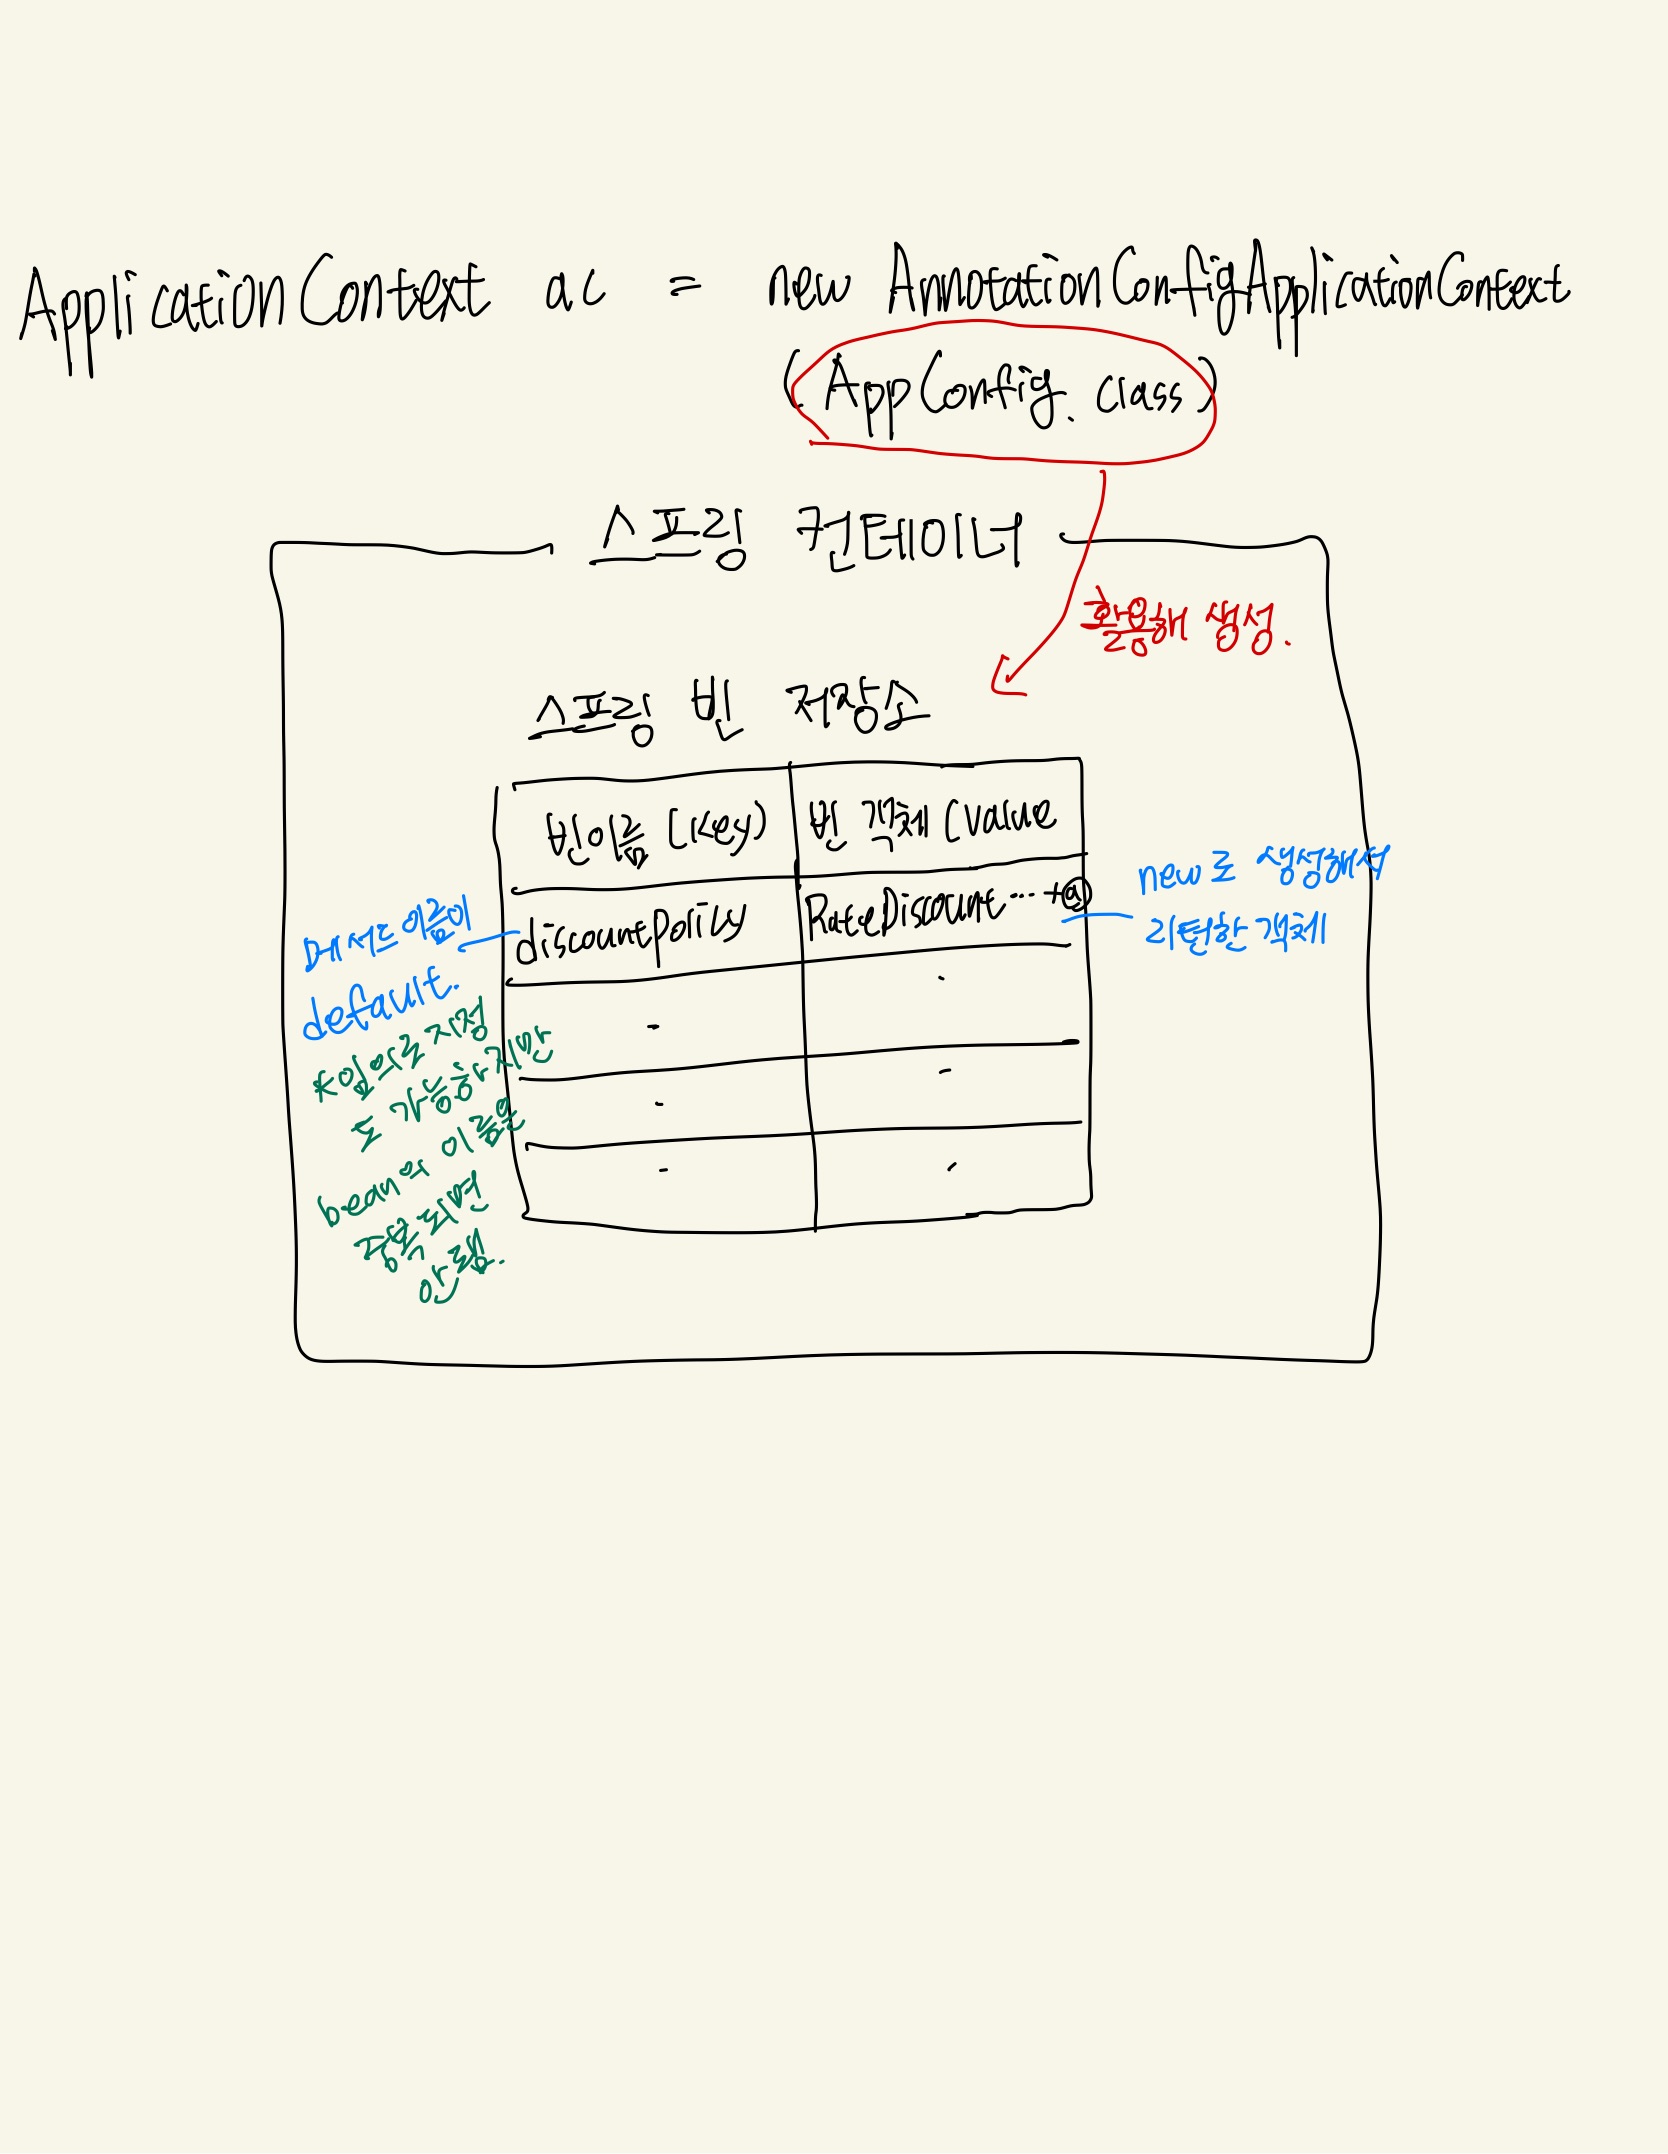 ApplicationContext ac = new AnnotationConfigApplicationContext
(AppConfig.class)
스프링 컨테이너
활용해 생성.
스프링 빈 저장소
빈이름 (key) 빈 객체 (value
discountPolicy RateDiscount... +@
메서드 이름이
default.
*임의로 지정
도 가능하지만
bean의 이름은
중복되면
안됨.
new로 생성해서
리턴한 객체